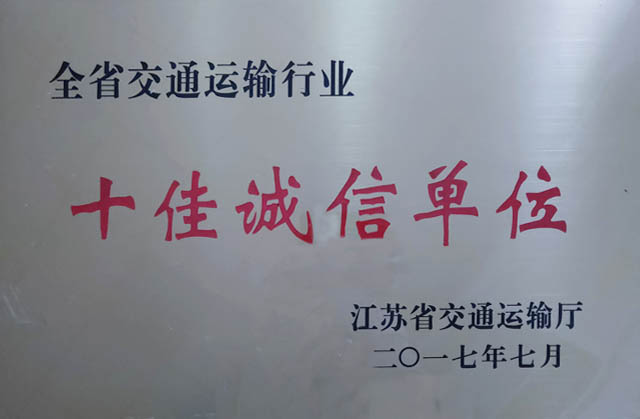 全省交通运输行业
十佳诚信单位
江苏省交通运输厅
二〇一七年七月